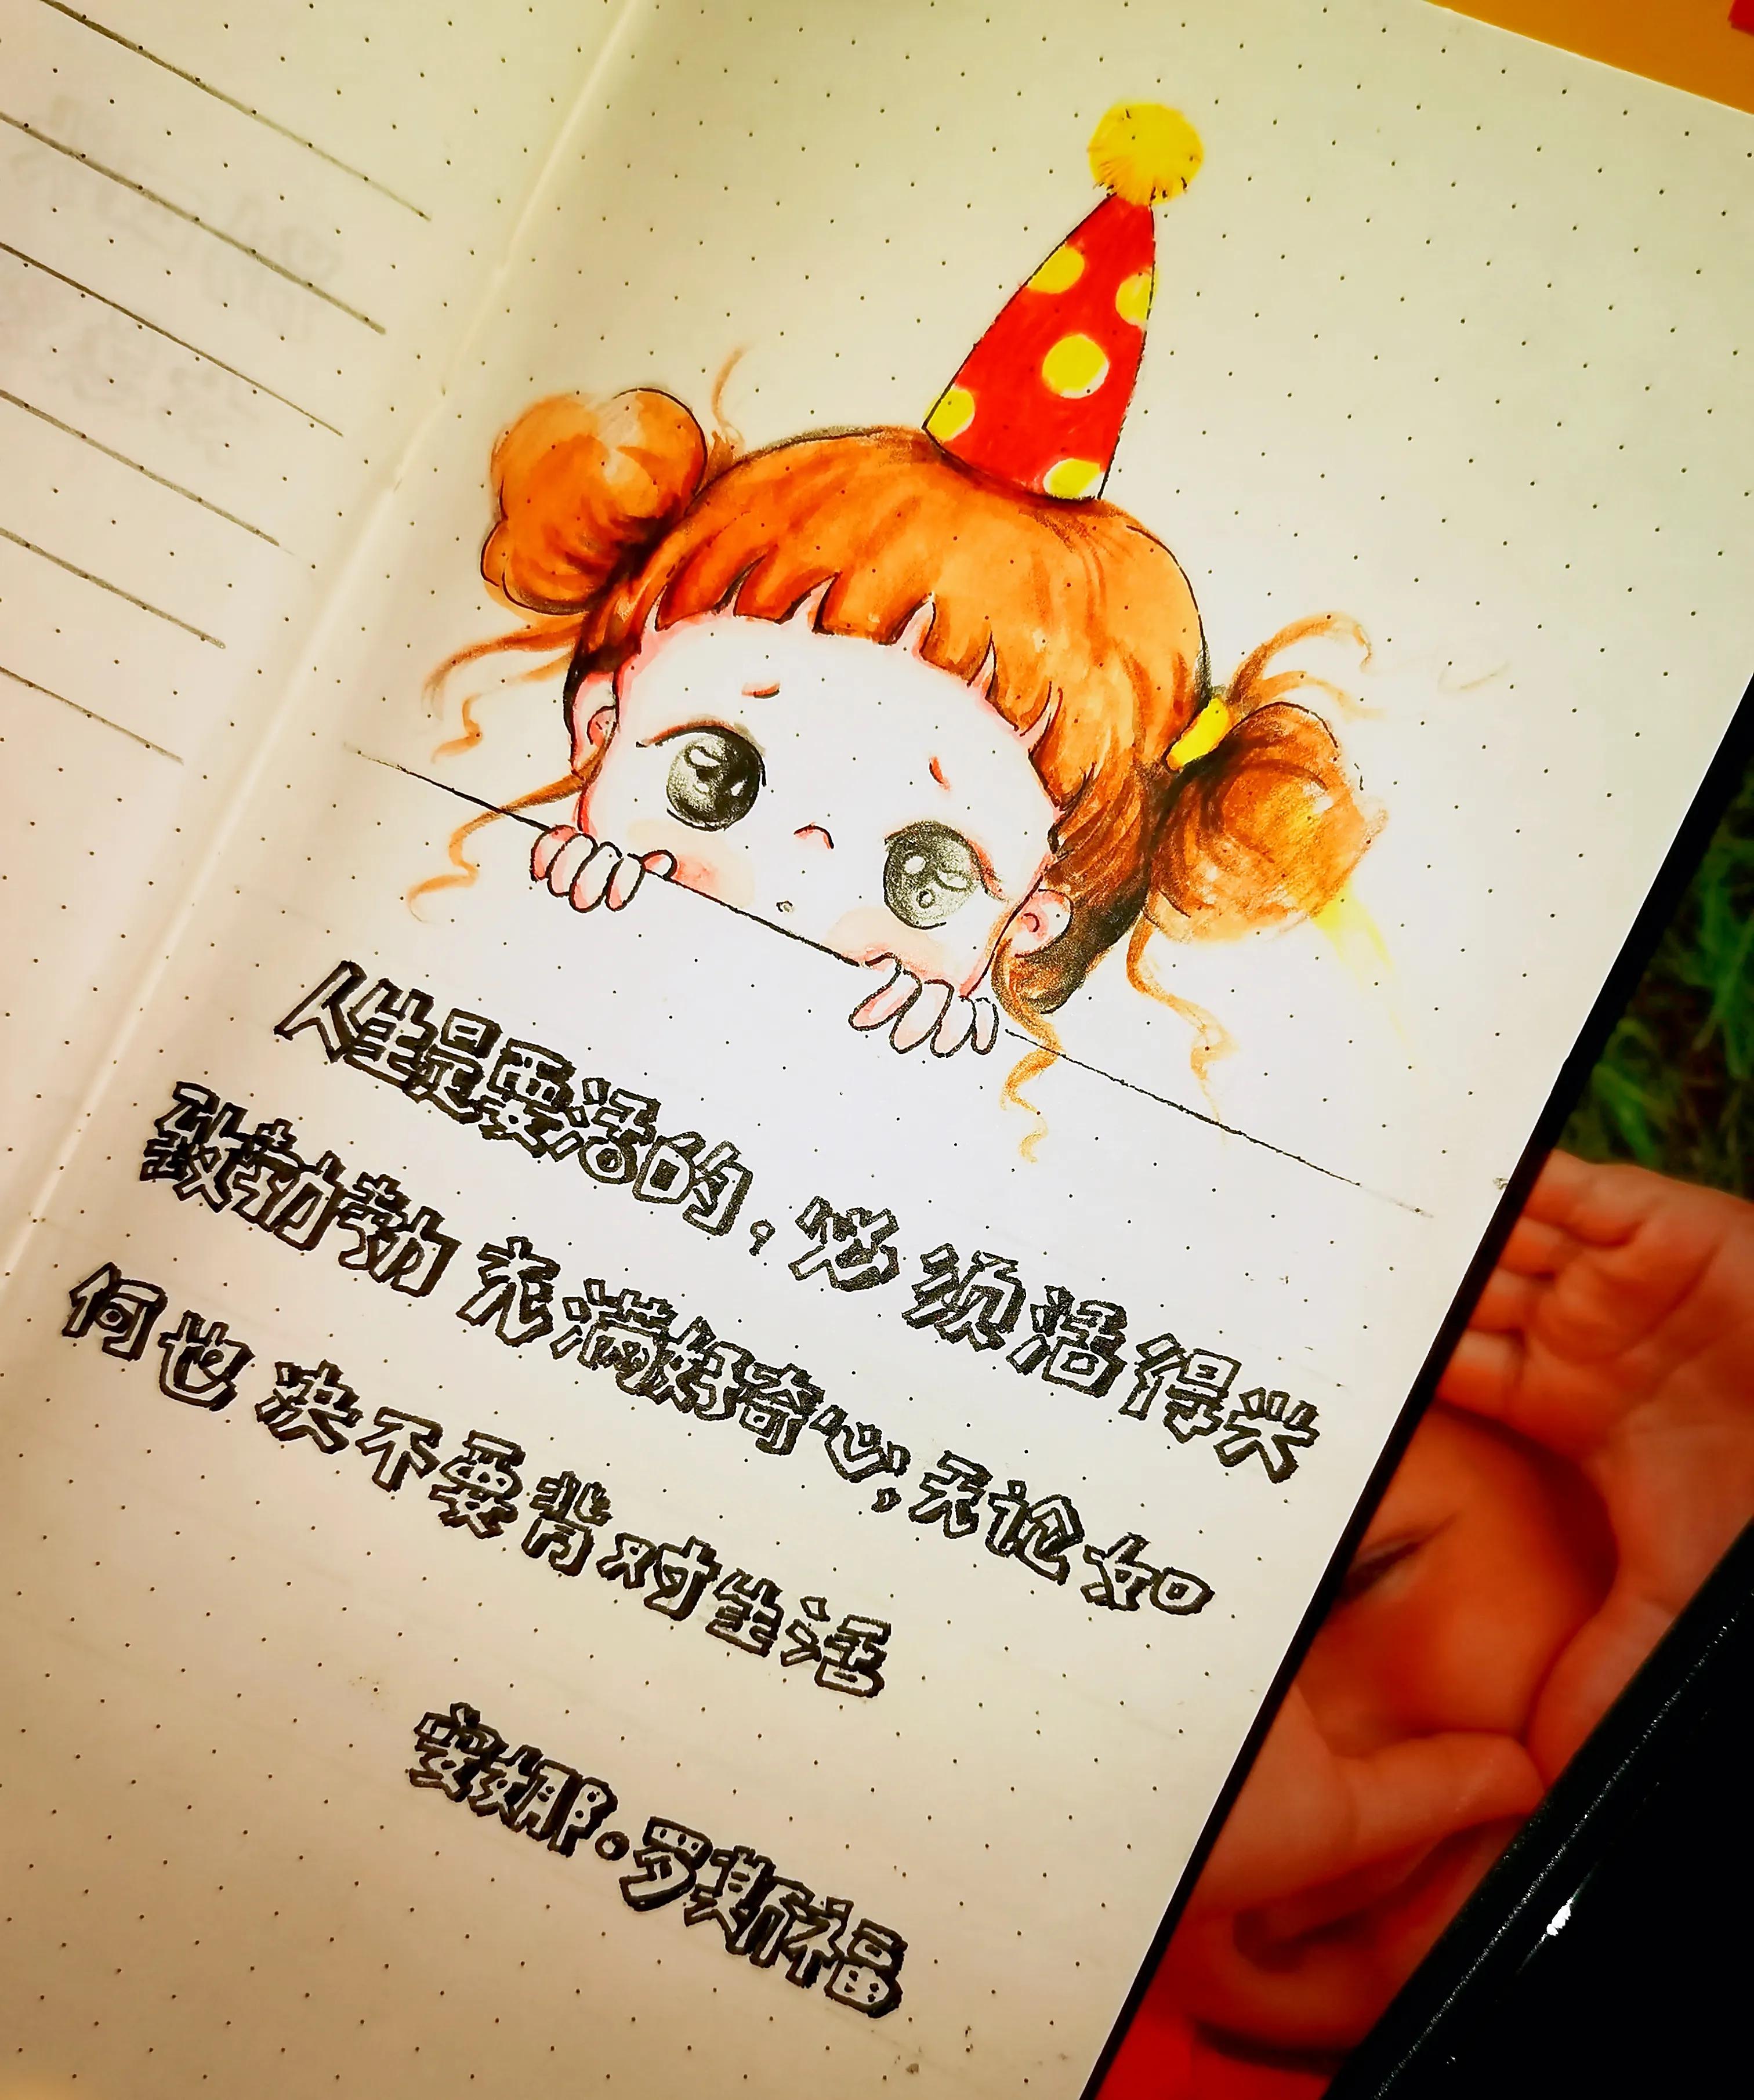 人生是要活的,必须活得兴
致勃勃 充满好奇心,无论如
何也 决不要背对生活
安娜·罗斯福